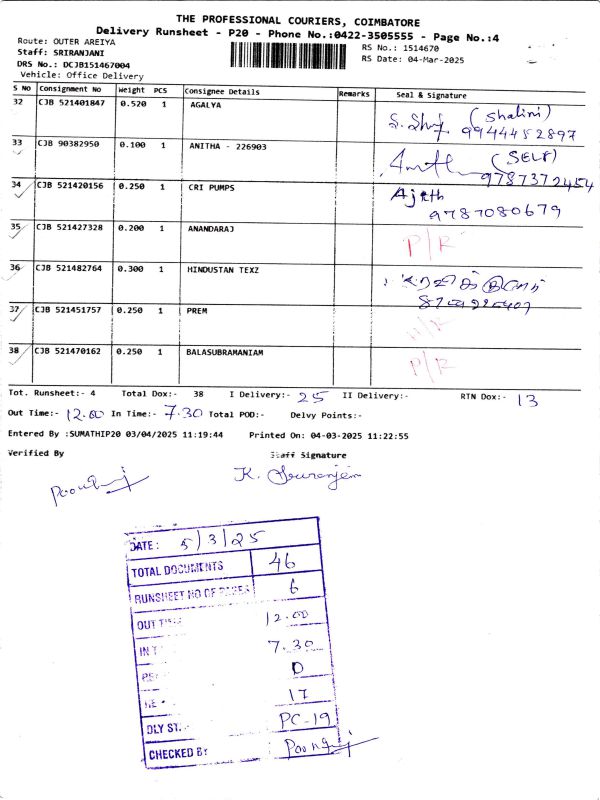 THE PROFESSIONAL COURIERS, COIMBATORE
Delivery Runsheet - P20 - Phone No.:0422-3505555 - Page No.:4
Route: OUTER AREIYA
RS No.: 1514670
Staff: SRIRANJANI
RS Date: 04-Mar-2025
DRS No.: DCJB151467004
Vehicle: Office Delivery
S No Consignment No Weight PCS Consignee Details Remarks Seal & Signature
32 CJB 521401847 0.520 1 AGALYA (Shalini)
9944452897
33 CJB 90382950 0.100 1 ANITHA - 226903 (SELF)
9787372454
34 CJB 521420156 0.250 1 CRI PUMPS Ajith
9787080679
35 CJB 521427328 0.200 1 ANANDARAJ P/R
36 CJB 521482764 0.300 1 HINDUSTAN TEXZ
37 CJB 521451757 0.250 1 PREM
38 CJB 521470162 0.250 1 BALASUBRAMANIAM P/R
Tot. Runsheet:- 4 Total Dox:- 38 I Delivery:- 25 II Delivery:- RTN Dox:- 13
Out Time:- 12.00 In Time:- 7.30 Total POD:- Delvy Points:-
Entered By :SUMATHIP20 03/04/2025 11:19:44 Printed On: 04-03-2025 11:22:55
Verified By Staff Signature
DATE: 5/3/25
TOTAL DOCUMENTS 46
RUNSHEET NO OF PAGES 6
OUT TIME 12.00
IN T 7.30
D
17
DLY ST. PC-19
CHECKED BY